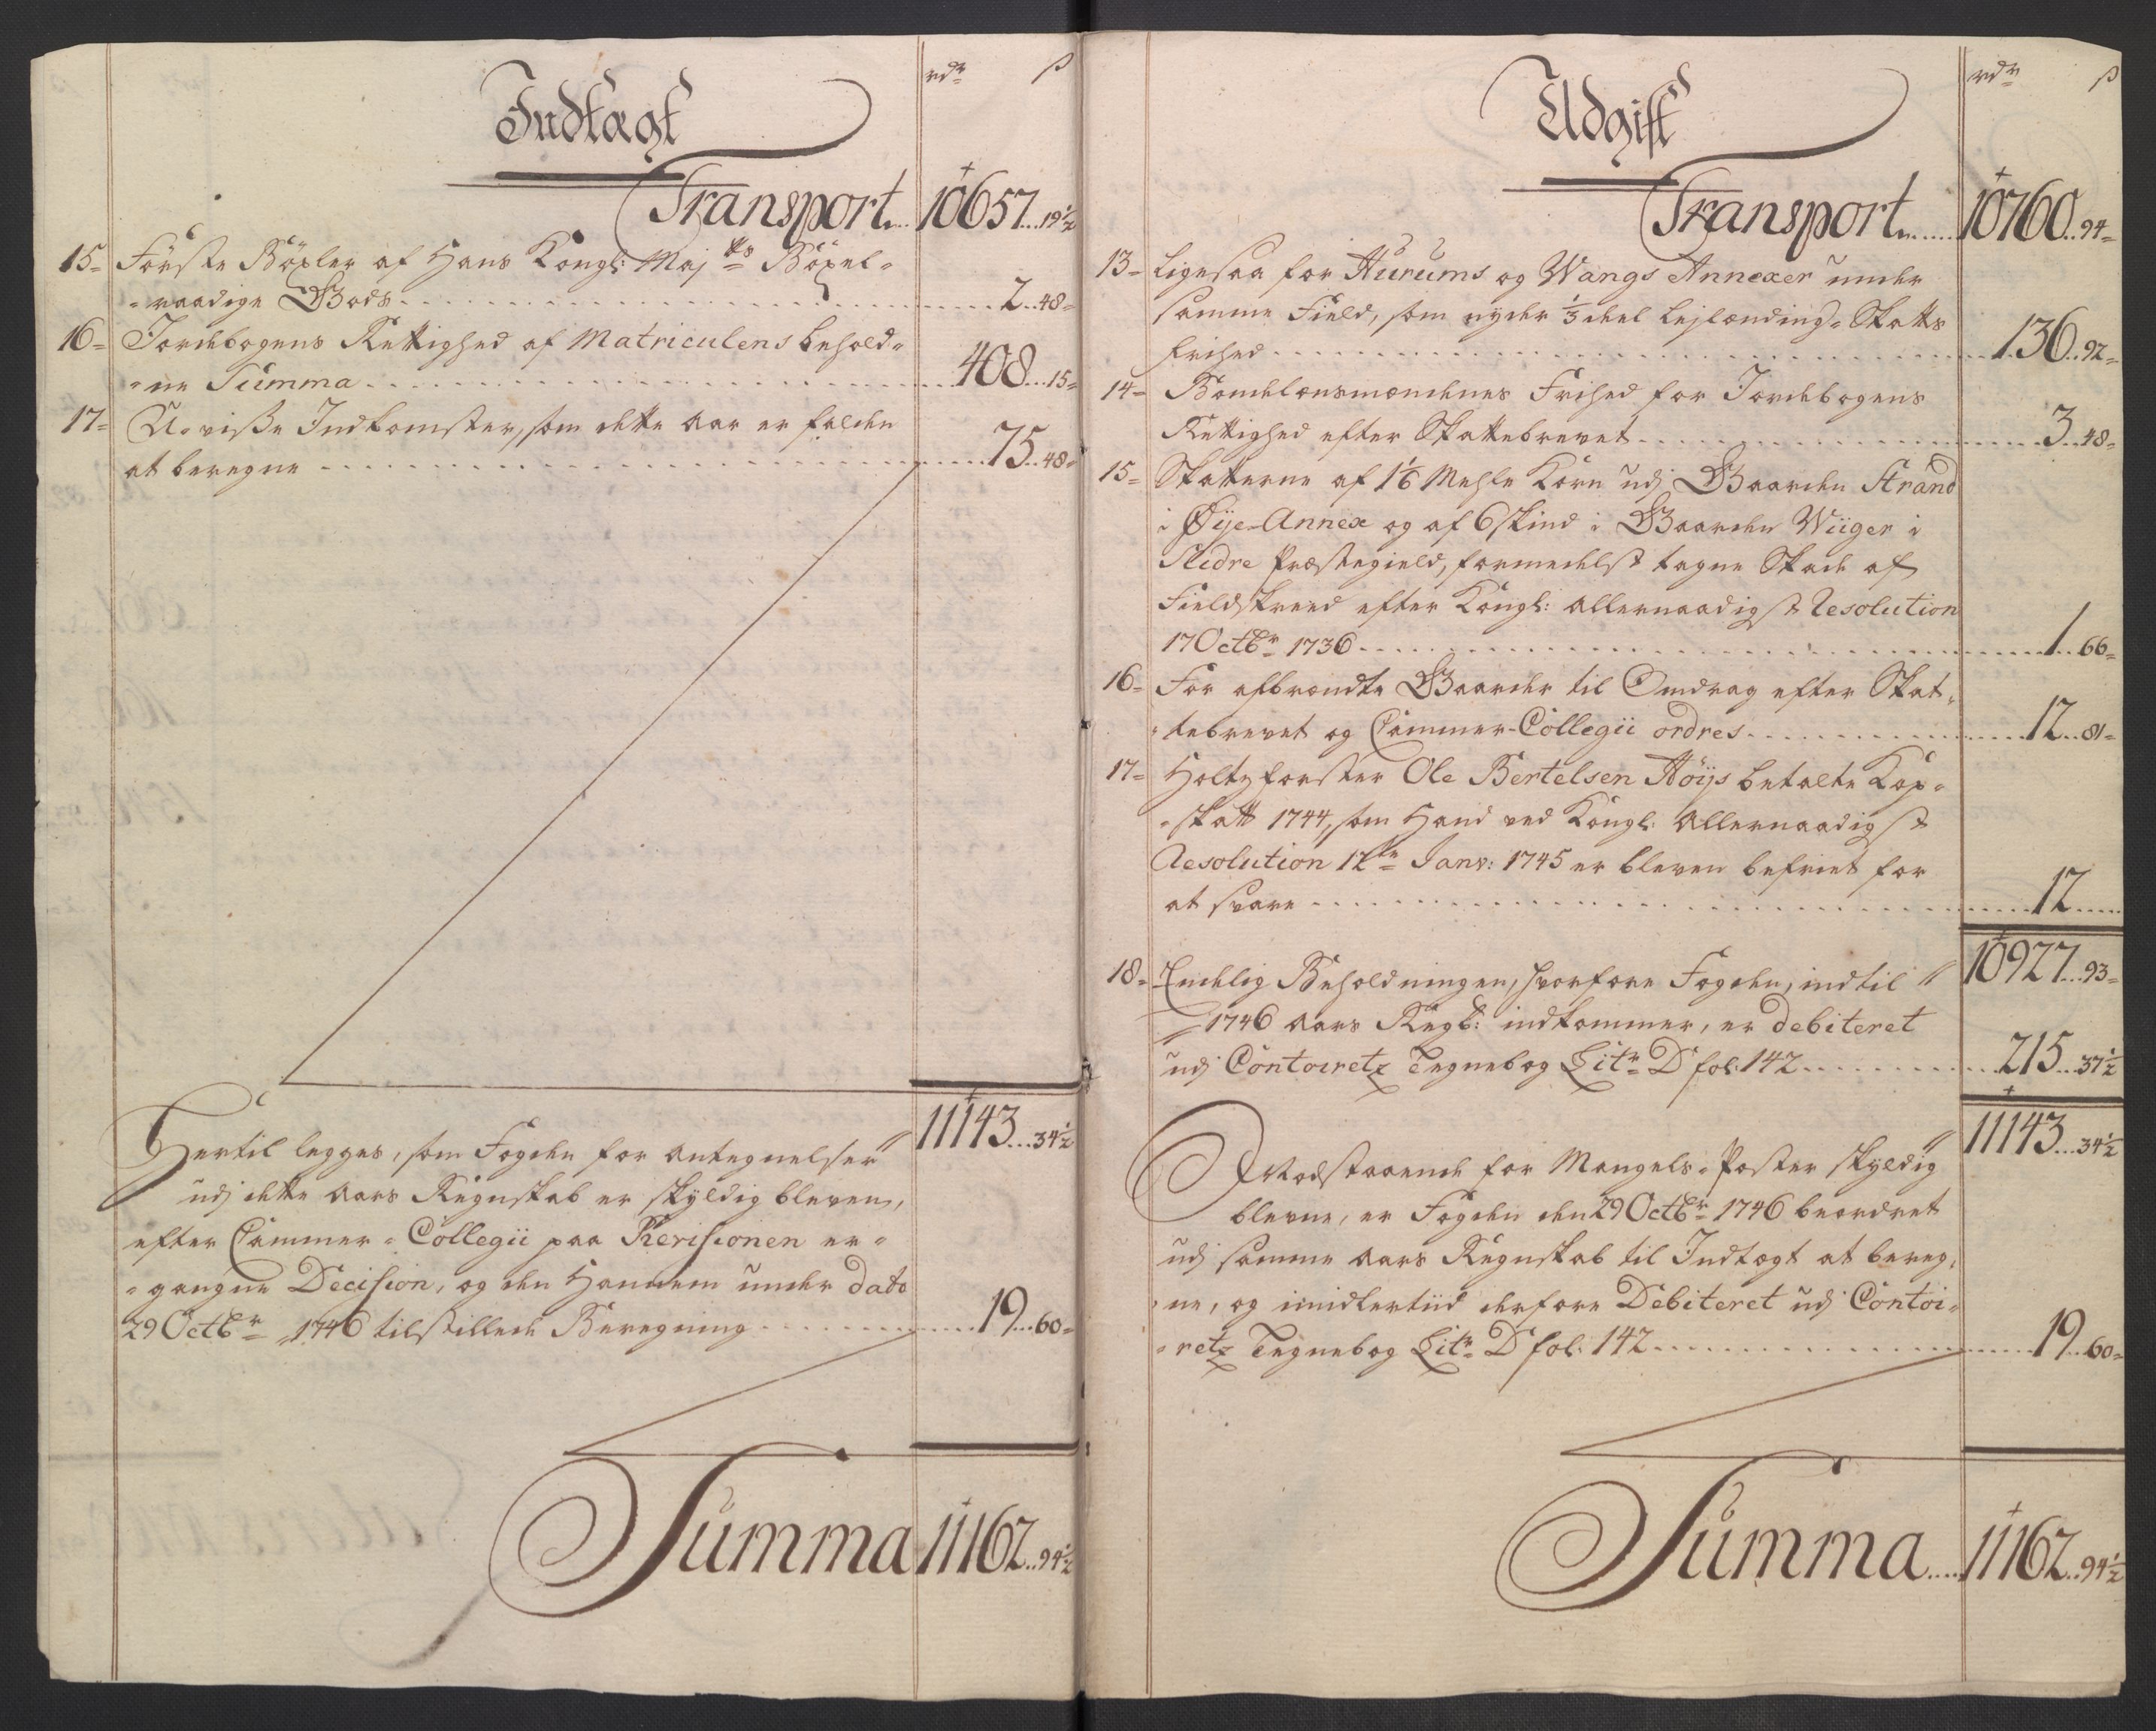 Indtægt
rdr ß
Transport... 10657...19½
15= Förste Böxler af Hans Kongl: Majtts Böxel=
=raadige Gods........ 2...48=
16= Jordebogens Rettighed af Matriculens behold=
=ne Summa........ 408...15=
17= U-visse Indkomster, som dette Aar er falden
at beregne ........ 75...48=
11143...34½
Hertil legges, som Fogden for Antegnelser
udj dette Aars Regnskab er skyldig bleven,
efter Cammer=Collegii paa Revisionen er=
=gangne Decision, og den Hannem under dato
29 Octbr 1746 tilstillede Beregning ........ 19...60=
Summa 11162...94½
Udgift
rdr ß
Transport...... 10760...94=
13= Ligesaa for Hurums og Wangs Annexer under
samme Field, som nyder ⅓ deel Lejlænding=Skatts
frihed........ 136...92=
14= Bondelænsmændenes Frihed for Jordebogens
Rettighed efter Skattebrevet........ 3...48=
15= Skatterne af 1⅙ Mehle Korn udj Gaarden Strand
i Øije-Annex og af 6 skind i Gaarden Wiiger i
Slidre Præstegield, formedelst tagne Skade af
Fieldskreed efter Kongl: Allernaadigst Resolution
17 Octbr 1736........ 1...66=
16= For afbrændte Gaarder til Omdrag efter Skat=
=tebrevet og Cammer-Collegii ordres........ 12...81=
17= Holtzforster Ole Bertelsen Höijs betalte Kop=
=skatt 1744, som Hand ved Kongl: Allernaadigst
Resolution 12te Janv: 1745 er bleven befriet for
at svare ........ 12......
10927...93=
18= Endelig Beholdningen, hvorfore Fogden, indtil
1746 Aars Regsk: indkommer, er debiteret
udj Contoiretz Tegnebog Litr D fol: 142........ 215...37½
11143...34½
Modstaaende for Mangels=Poster skyldig
blevne, er Fogden den 29 Octbr 1746 beordret
udj samme Aars Regnskab til Indtægt at bereg=
=ne, og imidlertiid derfore Debiteret udj Contoi=
=retz Tegnebog Litr D fol: 142........ 19...60=
Summa..... 11162...94½